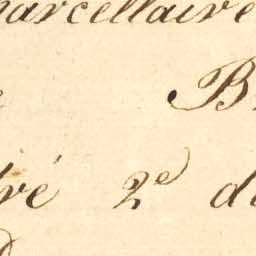 parcellaire
B
ré 2e d